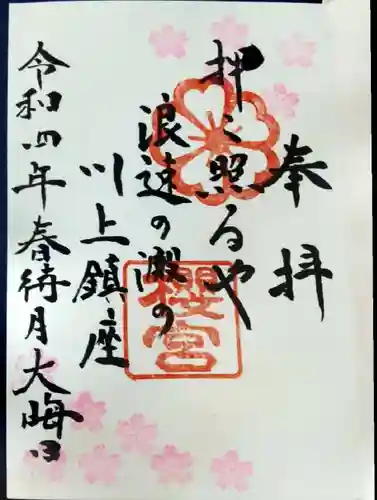 奉拝
押し照るや
浪速の瀬の
川上鎮座
令和四年春待月大晦日
櫻宮